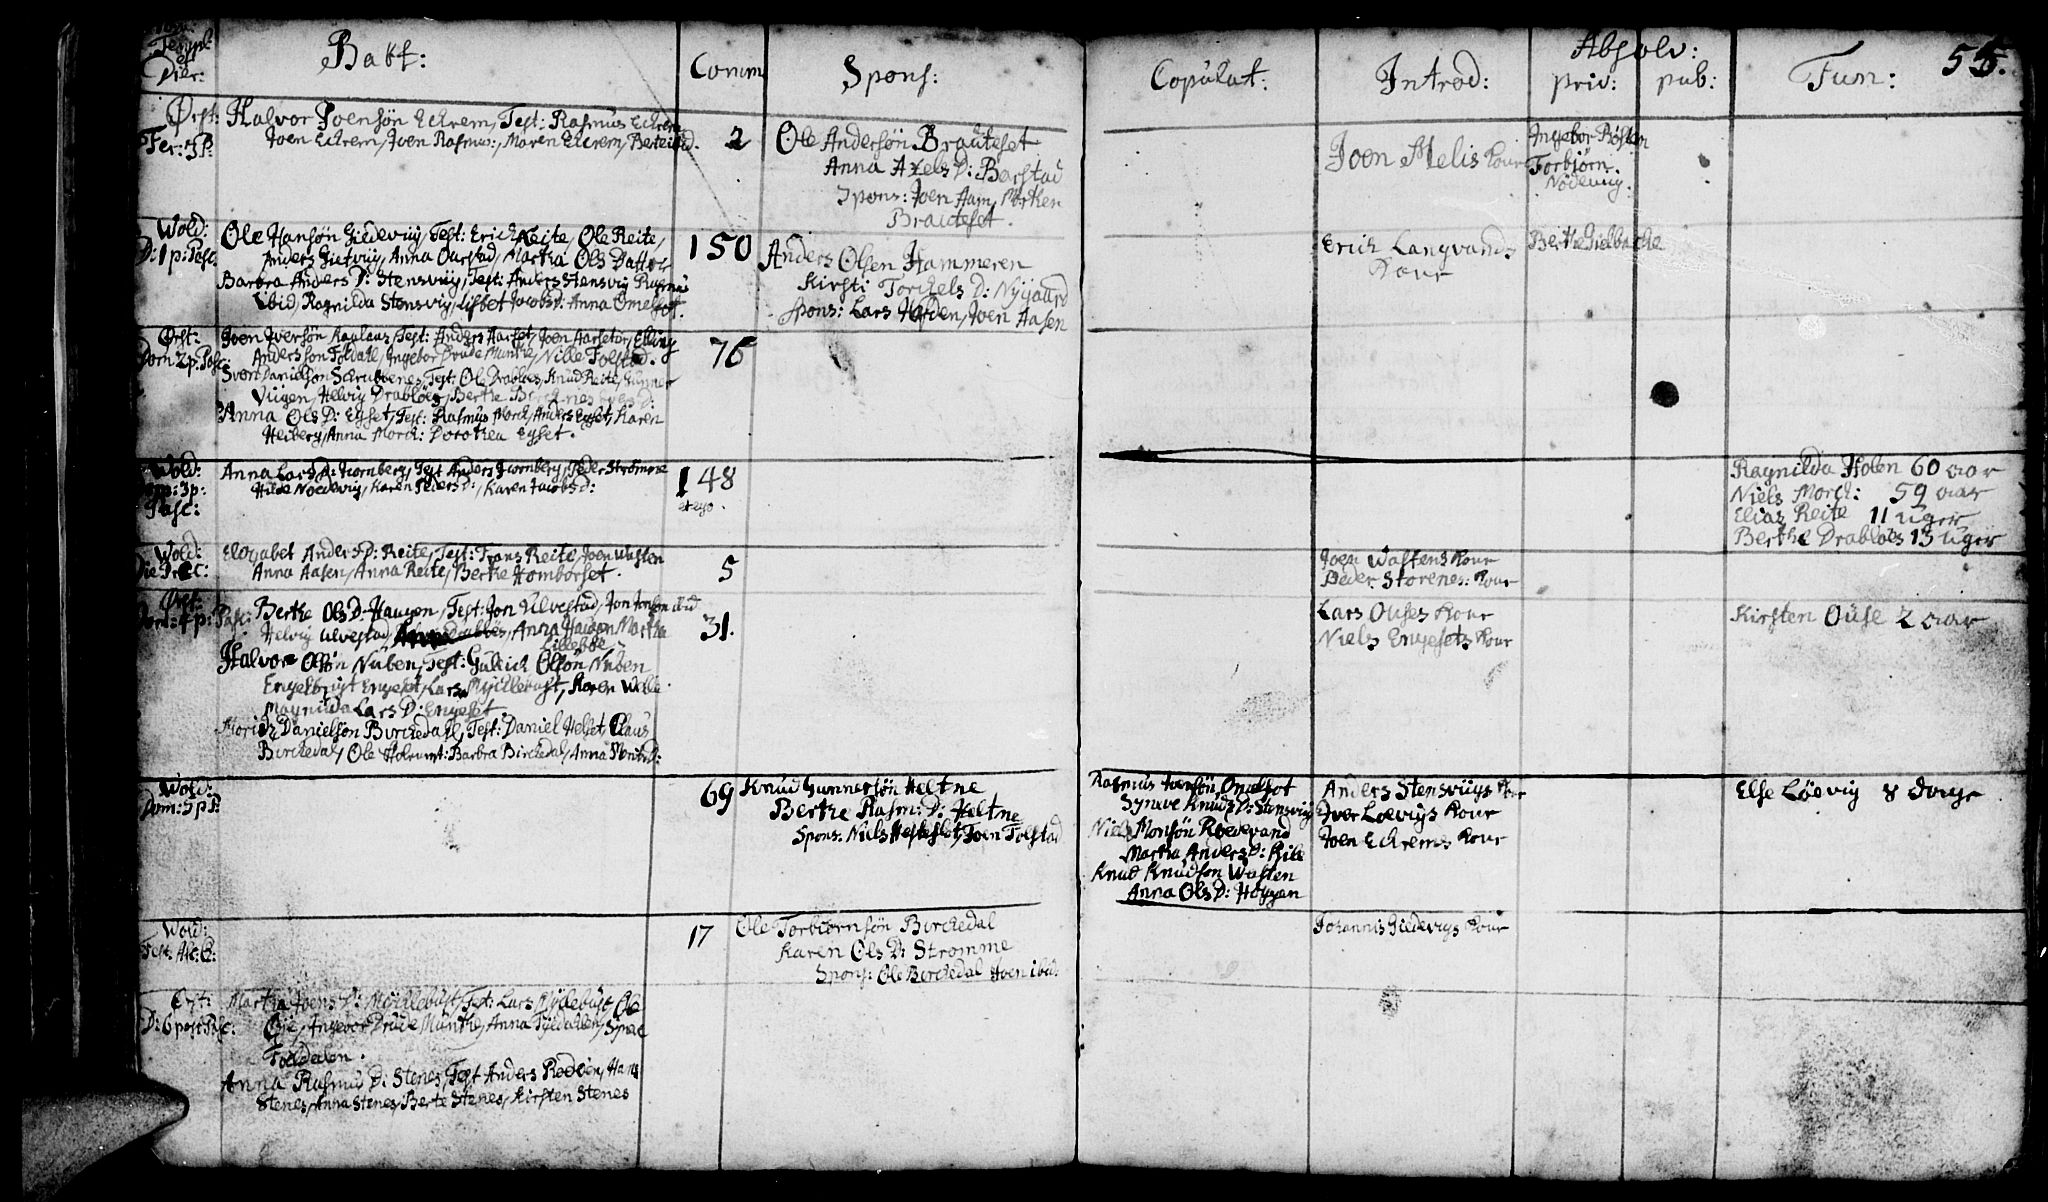 Templ:
et
Dier:
Bapt:
Comm
Spons:
Copulat:
Introd:
Absolv:
priv:
pub:
Fun:
55.
Ørst:
Fer: 3 P:
Halvor Joensön Eckrem, Test: Rasmus Eckrem
Joen Eckrem, Joen Rasmus:, Maren Eckrem, Berte ibid.
2
Ole Andersön Brauteset
Anna Axels D: Barstad
Spons: Joen Aam, Morten
Brauteset.
Joen Melis Kone
Ingebor Rösten
Torbiörn
Nödevig.
Wold:
D: 1 p: Pasc:
Ole Hansön Giedeviig, Test: Erich Reite, Ole Reite,
Anders Gietviig, Anna Ourstad, Martha Ols Datter
Barbra Anders D: Stensviig, Test: Anders Stensviig Rasmus
ibid, Ragnilda Stensviig, Lisbet Jacobs D: Anna Omelfot.
150
Anders Olsen Hammeren
Kirsti Torckels D: Nygaard
Spons: Lars Hovden, Joen Aasen
Erich Langvands
Kone
Berthe Gielbache
Ørst:
Dom 2 p: Pasc:
Joen Iversön Raglaus, Test: Anders Aarset, Joen Aarseter, Elling
Anderssön Foldal, Ingebor Drude Munthe, Nille Folestad.
Svend Danielsön Skrubbenes, Test: Ole Drabløs, Knud Reite, Gunner
Viigen, Helvig Drabløes, Berthe
Anna Ols D: Egset, Test: Rasmus Morck, Anders Egset, Karen
Heiberg, Anna Morck: Dorothea Egset.
76
Wold:
Dom: 3 p:
Pasc:
Anna Lars D: Hornberg, Test Anders Hornberg, Peder Strømme
Hilde Noedevig, Karen Peders D:, Karen Jacobs D:
148
et ego.
Ragnilda Holen 60 aar
Niels Morck: 59 aar
Elias Reite 11 uger
Berthe Drabløs 13 uger
Wold:
Die Prec:
Elizabet Anders D: Reite, Test: Frans Reite, Joen Wasten
Anna Aasen, Anna Reite, Berthe Homborset.
5
Joen Wastens Kone
Peder Storenes: Kone
Ørst:
Dom: 4 p: Pasc:
Berthe Ols D: Haugen, Test: Jon Ulvestad, Jon Jonsön ibid
Helvig Ulvestad, Anna Haugen Martha
Lillebøe
31.
Lars Ouses Kone
Niels Engesets Kone
Kirsten Ouse 2 aar
Halvor Olsön Nuben, Test: Gulich Olsön Nuben
Engelbrigt Engeset, Lars Myhlebust, Karen Wolle.
Magnilda Lars D: Engeset
Moritz Danielsön Birckedahl, Test: Daniel Helset, Claus
Birckedal, Ole Holsund: Barbra Birckedal, Anna Monts D:
Wold:
Dom: 5 p P:
69
Knud Gunnersön Heltne
Berthe Rasm: D: Heltne
Spons: Niels Hesteflot, Joen Folestad
Rasmus Joensön Omelfot
Synneve Knuds D: Stensviig
Niels Monsön Roedevand
Martha Anders D: Rite
Knud Knudsön Wasten
Anna Ols D: Höggen
Anders Stensviigs Kone
Iver Loevigs Kone
Joen Eckrems Kone
Else Løevig 8 Dage
Wold:
Fest: Asc:
17
Ole Torbiörnsön Birckedal
Karen Ols D: Strømme
Spons: Ole Birckedal Joen ibid:
Johannis Giedevigs Kone
Ørst:
D: 6 post Pasc:
Martha Joens D: Möhlebust, Test: Lars Mylebust, Ole
Øje, Ingebor Drude Munthe, Anna Folsdalen, Synne
Foldalen.
Anna Rasmus D: Stenes, Test Anders Rødven, Hans
Stenes, Anna Stenes, Berte Stenes, Kirsten Stenes